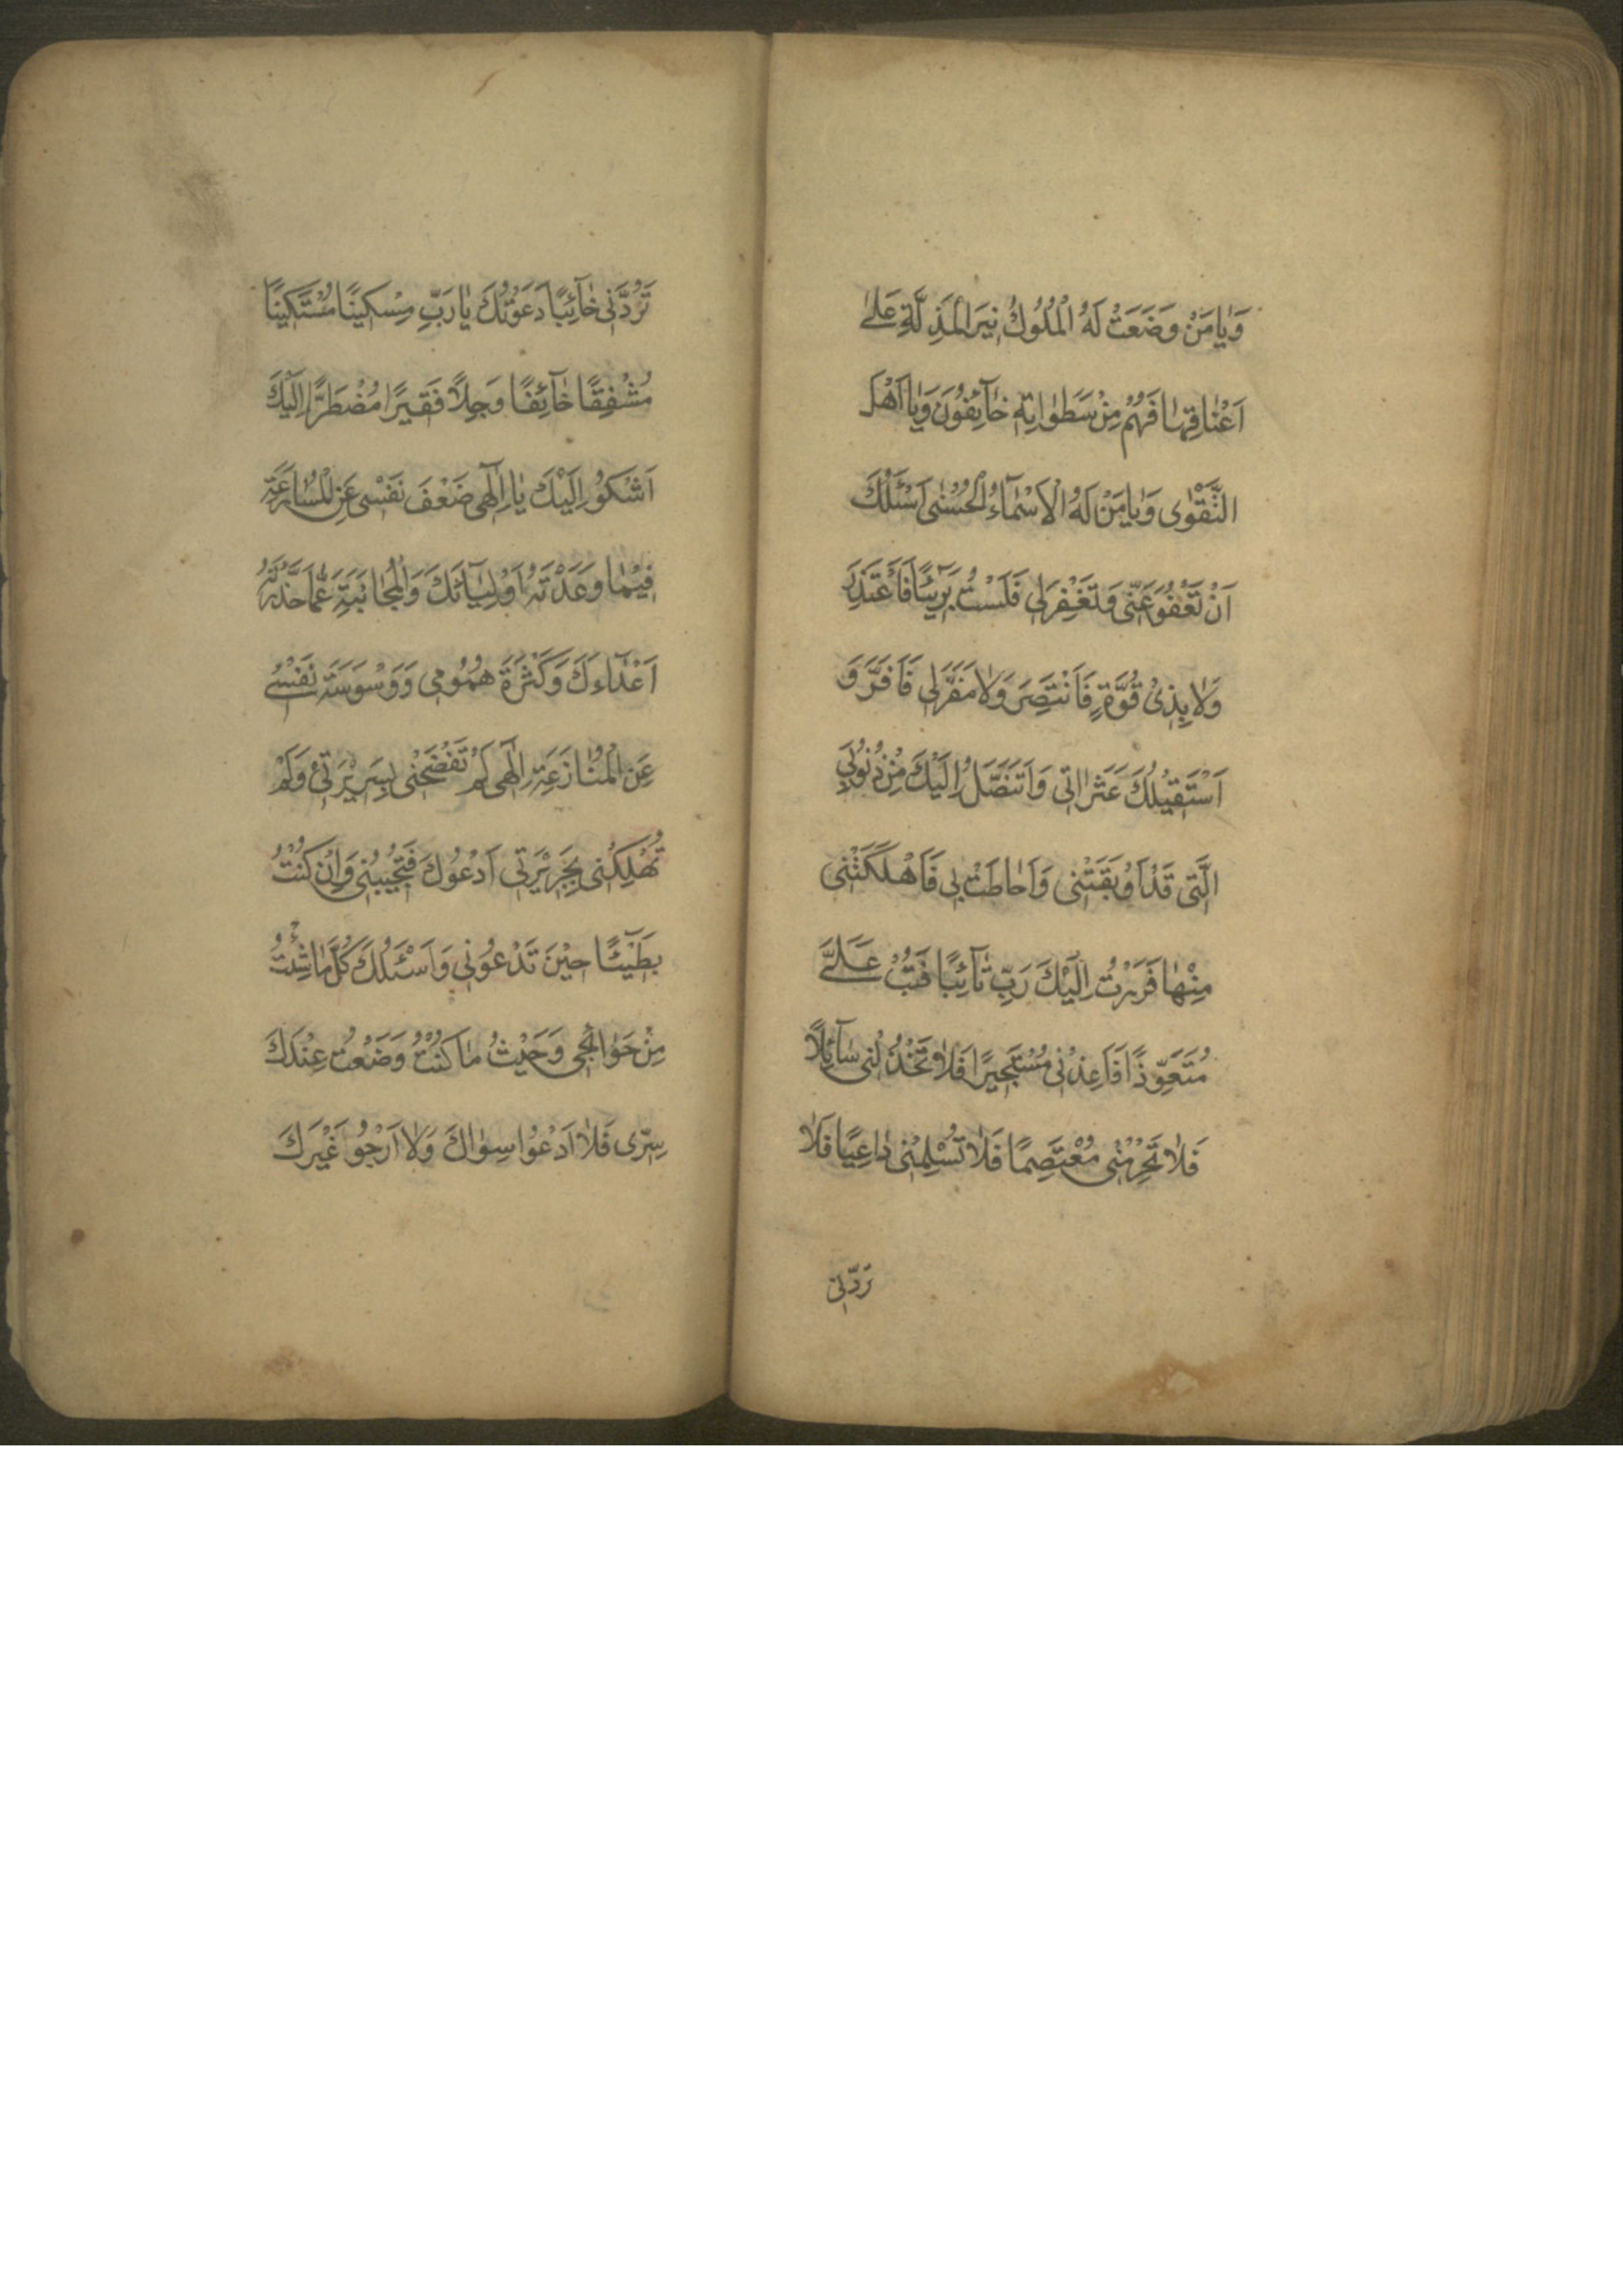 وَيٰا مَنْ وَضَعَتْ لَهُ الْمُلُوكُ نِيَرَ الْمَذِلَّةِ عَلىٰ
اَعْنٰاقِهٰا فَهُمْ مِنْ سَطَوٰاتِهِ خٰآئِفُونَ وَيٰا اَهْلَ
التَّقْوٰى وَيٰا مَنْ لَهُ الْاَسْمٰآءُ الْحُسْنٰى اَسْئَلُكَ
اَنْ تَعْفُوَ عَنّى وَتَغْفِرَ لى فَلَسْتُ بَرِيئًا فَاَعْتَذِرَ
وَلٰا بِذىْ قُوَّةٍ فَاَنْتَصِرَ وَلٰا مَفَرَّ لى فَاَفِرَّ وَ
اَسْتَقيْلُكَ عَثَرٰاتى وَاَتَنَصَّلُ اِلَيْكَ مِنْ ذُنُوبى
الَّتى قَدْ اَوْبَقَتْنى وَاَحٰاطَتْ بى فَاَهْلَكَتْنى
مِنْهٰا فَرَرْتُ اِلَيْكَ رَبِّ تٰآئِبًا فَتُبْ عَلَىَّ
مُتَعَوِّذًا فَاَعِذْنى مُسْتَجيرًا فَلٰا تَخْذُلْنى سٰآئِلًا
فَلٰا تَحْرِمْنى مُعْتَصِمًا فَلٰا تُسْلِمْنى دٰاعِيًا فَلٰا
تَرُدَّنى
تَرُدَّنى خٰآئِبًا دَعَوْتُكَ يٰا رَبِّ مِسْكينًا مُسْتَكينًا
مُشْفِقًا خٰآئِفًا وَجِلًا فَقيرًا مُضْطَرًّا اِلَيْكَ
اَشْكُوْ اِلَيْكَ يٰا اِلٰهى ضَعْفَ نَفْسى عَنِ الْمُسٰارَعَةِ
فيْمٰا وَعَدْتَهُ اَوْلِيٰآئَكَ وَالْمُجٰانَبَةِ عَمّٰا حَذَّرْتَهُ
اَعْدٰآءَكَ وَكَثْرَةَ هُمُومى وَوَسْوَسَةَ نَفْسى
عَنِ الْمُنٰازَعَةِ اِلٰهى لَمْ تَفْضَحْنى بِسَريْرَتى وَلَمْ
تُهْلِكْنى بِجَريْرَتى اَدْعُوكَ فَتُجيبُنى وَاِنْ كُنْتُ
بَطيْئًا حيْنَ تَدْعُونى وَاَسْئَلُكَ كُلَّمٰا شِئْتُ
مِنْ حَوٰائِجى وَحَيْثُ مٰا كُنْتُ وَضَعْتُ عِنْدَكَ
سِرّى فَلٰا اَدْعُوا سِوٰاكَ وَلٰا اَرْجُو غَيْرَكَ